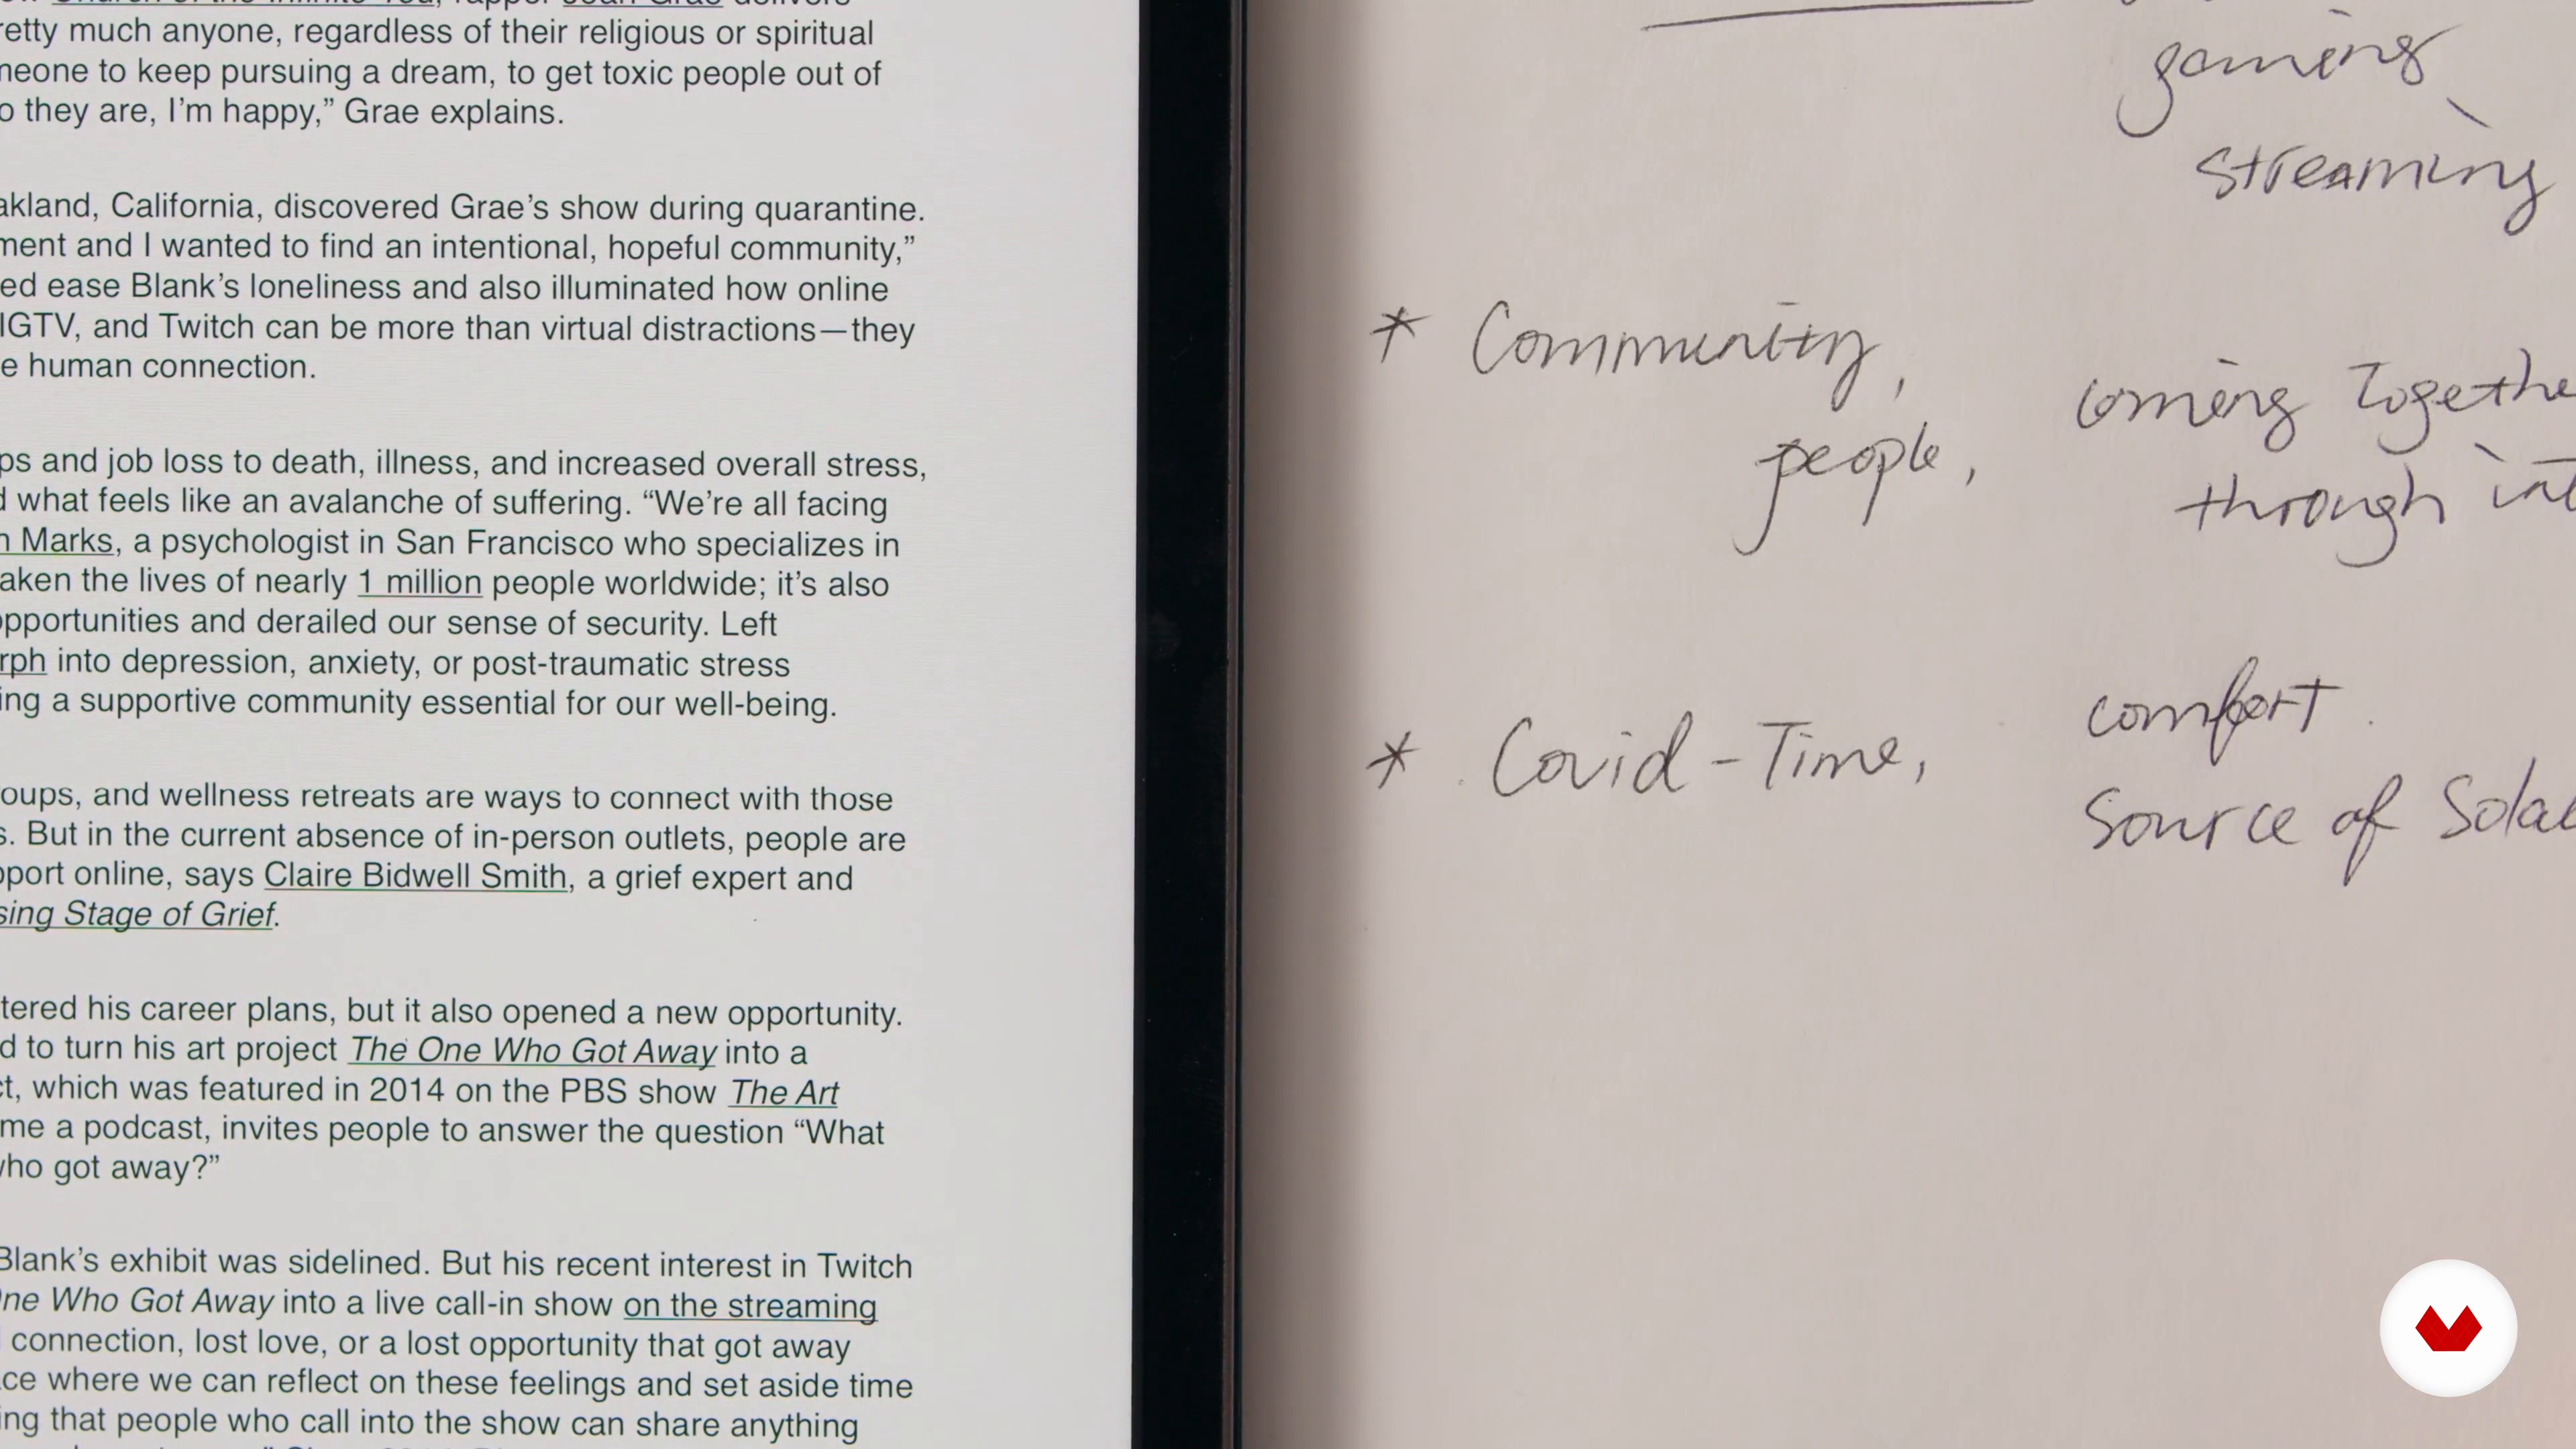 retty much anyone, regardless of their religious or spiritual
meone to keep pursuing a dream, to get toxic people out of
o they are, I'm happy,” Grae explains.
akland, California, discovered Grae's show during quarantine.
ment and I wanted to find an intentional, hopeful community,”
ed ease Blank's loneliness and also illuminated how online
IGTV, and Twitch can be more than virtual distractions—they
e human connection.
ps and job loss to death, illness, and increased overall stress,
d what feels like an avalanche of suffering. “We're all facing
n Marks, a psychologist in San Francisco who specializes in
aken the lives of nearly 1 million people worldwide; it's also
opportunities and derailed our sense of security. Left
rph into depression, anxiety, or post-traumatic stress
ing a supportive community essential for our well-being.
oups, and wellness retreats are ways to connect with those
s. But in the current absence of in-person outlets, people are
pport online, says Claire Bidwell Smith, a grief expert and
sing Stage of Grief.
tered his career plans, but it also opened a new opportunity.
d to turn his art project The One Who Got Away into a
ct, which was featured in 2014 on the PBS show The Art
me a podcast, invites people to answer the question “What
who got away?”
Blank's exhibit was sidelined. But his recent interest in Twitch
One Who Got Away into a live call-in show on the streaming
connection, lost love, or a lost opportunity that got away
ce where we can reflect on these feelings and set aside time
ing that people who call into the show can share anything
gaming
streaming
* Community,
people,
coming Togethe
through int
* Covid-Time,
comfort.
Source of Solac